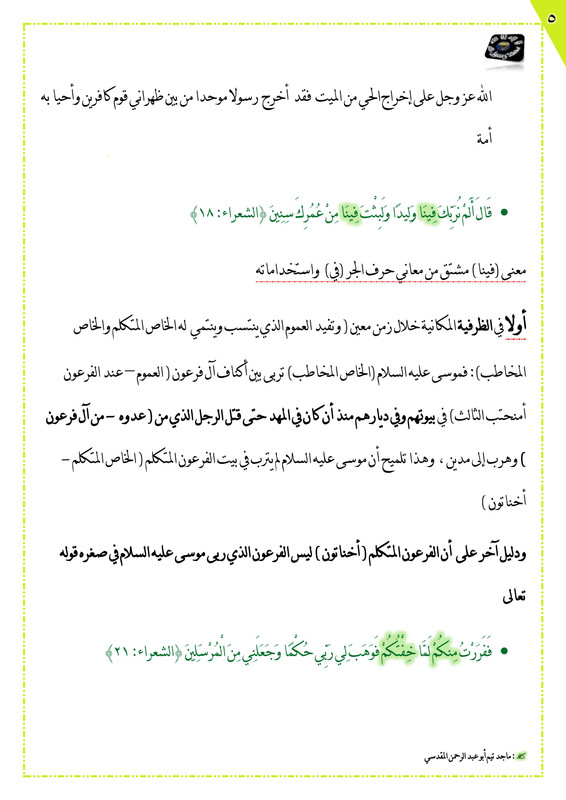 ٥
الله عز وجل على إخراج الحي من الميت فقد أخرج رسولا موحدا من بين ظهراني قوم كافرين وأحيا به
أمة
• قَالَ أَلَمْ نُرَبِّكَ فِينَا وَلِيدًا وَلَبِثْتَ فِينَا مِنْ عُمُرِكَ سِنِينَ ﴿الشعراء: ١٨﴾
معنى (فينا) مشتق من معاني حرف الجر (في) واستخداماته
أولا في الظرفية المكانية خلال زمن معين (وتفيد العموم الذي ينتسب وينتمي له الخاص المتكلم والخاص
المخاطب): فموسى عليه السلام (الخاص المخاطب) تربى بين أكناف آل فرعون (العموم – عند الفرعون
أمنحتب الثالث) في بيوتهم وفي ديارهم منذ أن كان في المهد حتى قتل الرجل الذي من (عدوه – من آل فرعون
) وهرب إلى مدين ، وهذا تلميح أن موسى عليه السلام لم يترب في بيت الفرعون المتكلم (الخاص المتكلم –
أخناتون)
ودليل آخر على أن الفرعون المتكلم (أخناتون) ليس الفرعون الذي ربى موسى عليه السلام في صغره قوله
تعالى
• فَفَرَرْتُ مِنكُمْ لَمَّا خِفْتُكُمْ فَوَهَبَ لِي رَبِّي حُكْمًا وَجَعَلَنِي مِنَ الْمُرْسَلِينَ ﴿الشعراء: ٢١﴾
: ماجد تيم أبو عبد الرحمن المقدسي